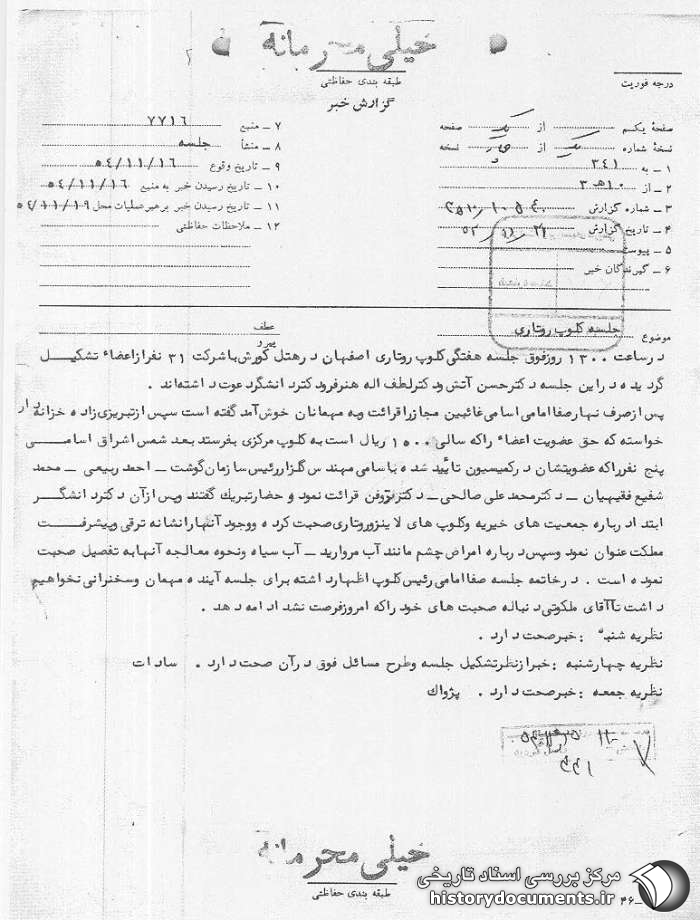 خیلی محرمانه
طبقه بندی حفاظتی
درجه فوریت
گزارش خبر
صفحهٔ یکم از یک صفحه
نسخهٔ شماره یک از نسخه
۱ ـ به ۳۴۱
۲ ـ از ۱۰هـ ۳
۳ ـ شماره گزارش
۴ ـ تاریخ گزارش
۵ ـ پیوست
۶ ـ گیرندگان خبر
۷ ـ منبع ۷۷۱۶
۸ ـ منشأ جلسه
۹ ـ تاریخ وقوع ۵۴/۱۱/۱۶
۱۰ ـ تاریخ رسیدن خبر به منبع ۵۴/۱۱/۱۶
۱۱ ـ تاریخ رسیدن خبر به رهبر عملیات محل ۵۴/۱۱/۱۹
۱۲ ـ ملاحظات حفاظتی
موضوع جلسه کلوپ روتاری
عطف
پیرو
در ساعت ۱۳۰۰ روز فوق جلسه هفتگی کلوپ روتاری اصفهان در هتل کورش با شرکت ۳۱ نفر از اعضاء تشکیل
گردیده در این جلسه دکتر حسن آتش و دکتر لطف اله هنرفر و دکتر دانشگر دعوت داشته‌اند .
پس از صرف نهار صفا امامی اسامی غائبین مجاز را قرائت و به مهمانان خوش‌آمد گفته است سپس از تبریزی زاده خزانه دار
خواسته که حق عضویت اعضاء را که سالی ۱۵۰۰ ریال است به کلوپ مرکزی بفرستد بعد شمس اشراق اسامی
پنج نفر را که عضویتشان در کمیسیون تأیید شده با سامی مهندس گلزار رئیس سازمان گوشت ـ احمد ربیعی ـ محمد
شفیع فقیهیان ـ دکتر محمد علی صالحی ـ دکتر قرائت نمود و حضار تبریک گفتند و پس از آن دکتر دانشگر
ابتدا درباره جمعیت های خیریه و کلوپ های لاینز و روتاری صحبت کرده و وجود آنها را نشانه ترقی و پیشرفت
مملکت عنوان نمود و سپس درباره امراض چشم مانند آب مروارید ـ آب سیاه و نحوه معالجه آنها به تفصیل صحبت
نموده است . در خاتمه جلسه صفا امامی رئیس کلوپ اظهار داشته برای جلسه آینده مهمان و سخنرانی نخواهیم
داشت تا آقای ملکوتی دنباله صحبت های خود را که امروز فرصت نشد ادامه دهد .
نظریه شنبه : خبر صحت دارد .
نظریه چهارشنبه : خبر از نظر تشکیل جلسه و طرح مسائل فوق در آن صحت دارد . سادات
نظریه جمعه : خبر صحت دارد . پژواک
خیلی محرمانه
طبقه بندی حفاظتی
مرکز بررسی اسناد تاریخی
historydocuments.ir